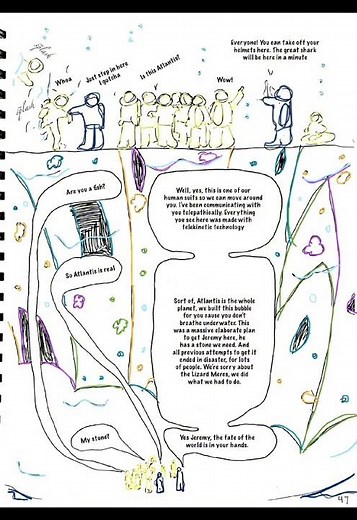 Everyone! You can take off your
helmets here. The great shark
will be here in a minute
flash
flash
Whoa
Just step in here
I gotcha
Is this Atlantis?
Wow!
Are you a fish?
Well, yes, this is one of our
human suits so we can move around
you. I've been communicating with
you telepathically. Everything
you see here was made with
telekinetic technology
So Atlantis is real
Sort of, Atlantis is the whole
planet, we built this bubble
for you cause you don't
breathe underwater. This
was a massive elaborate plan
to get Jeremy here, he
has a stone we need. And
all previous attempts to get it
ended in disaster, for lots
of people. We're sorry about
the Lizard Meres, we did
what we had to do.
My stone?
Yes Jeremy, the fate of the
world is in your hands.
47